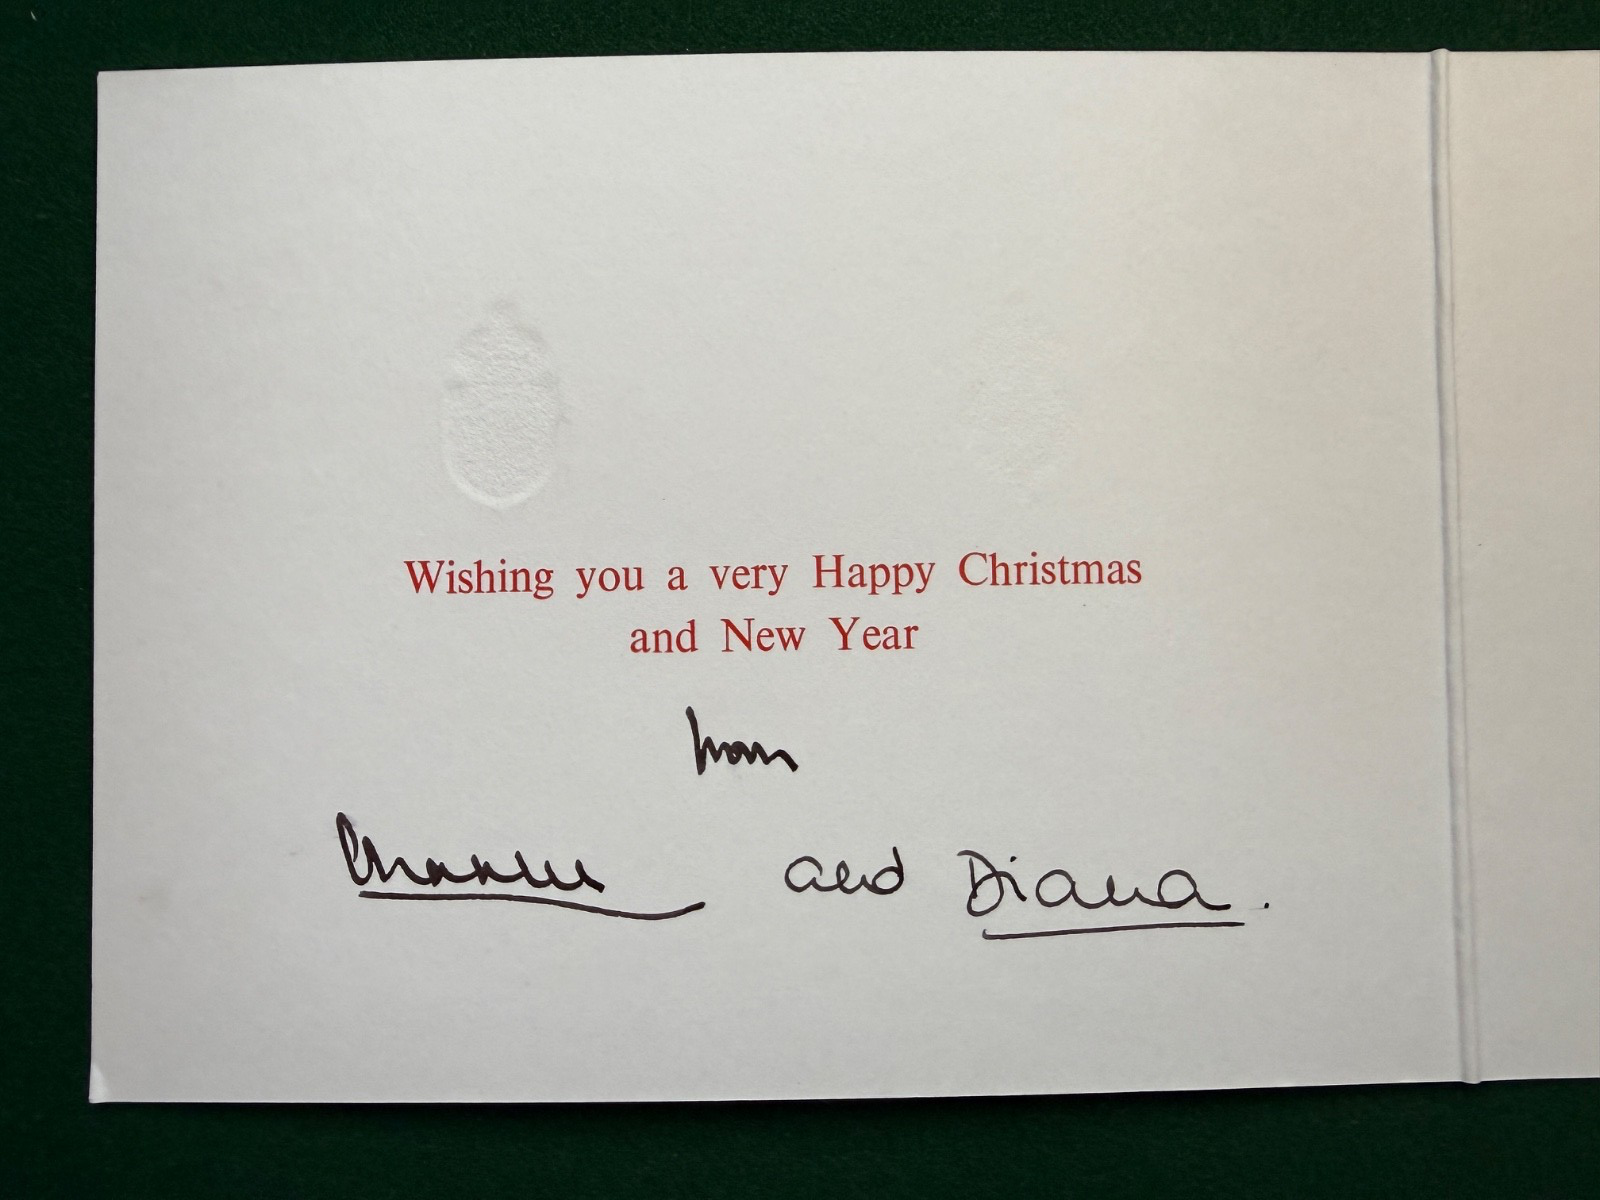 Wishing you a very Happy Christmas
and New Year
from
Charles and Diana.